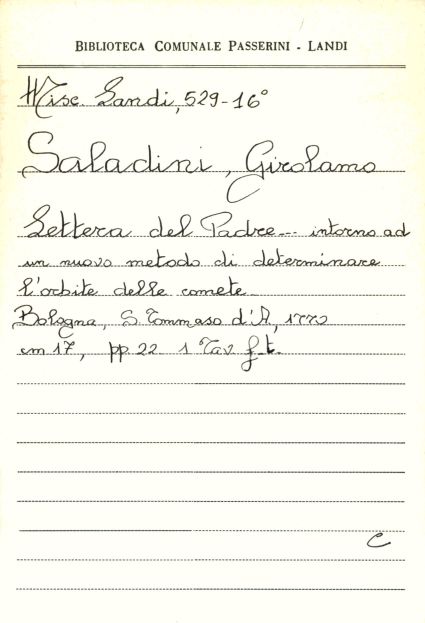 BIBLIOTECA COMUNALE PASSERINI - LANDI
Misc. Landi, 529-16°
Saladini, Girolamo
Lettera del Padre... intorno ad
un nuovo metodo di determinare
l'orbite delle comete
Bologna, S. Tommaso d'A, 1770
cm 17, pp. 22 1 Tav. f.t.
C